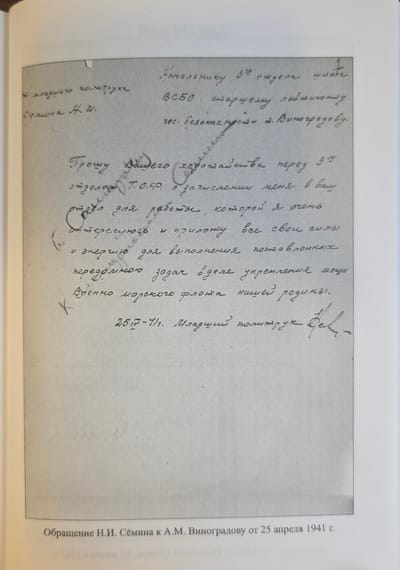 1
Начальнику 3го отдела штаба
От младшего политрука
ВСБО старшему лейтенанту
Сёмина Н. И.
гос. безопасности т. Виноградову.
Прошу Вашего ходатайства перед 3им
отделом Т.О.Ф. о зачислении меня в ваш
отдел для работы, которой я очень
интересуюсь и приложу все свои силы
и энергию для выполнения поставленных
передомною задач в деле укрепления мощи
Военно морского флота нашей родины.
25 IV-41г. Младший политрук
Обращение Н.И. Сёмина к А.М. Виноградову от 25 апреля 1941 г.